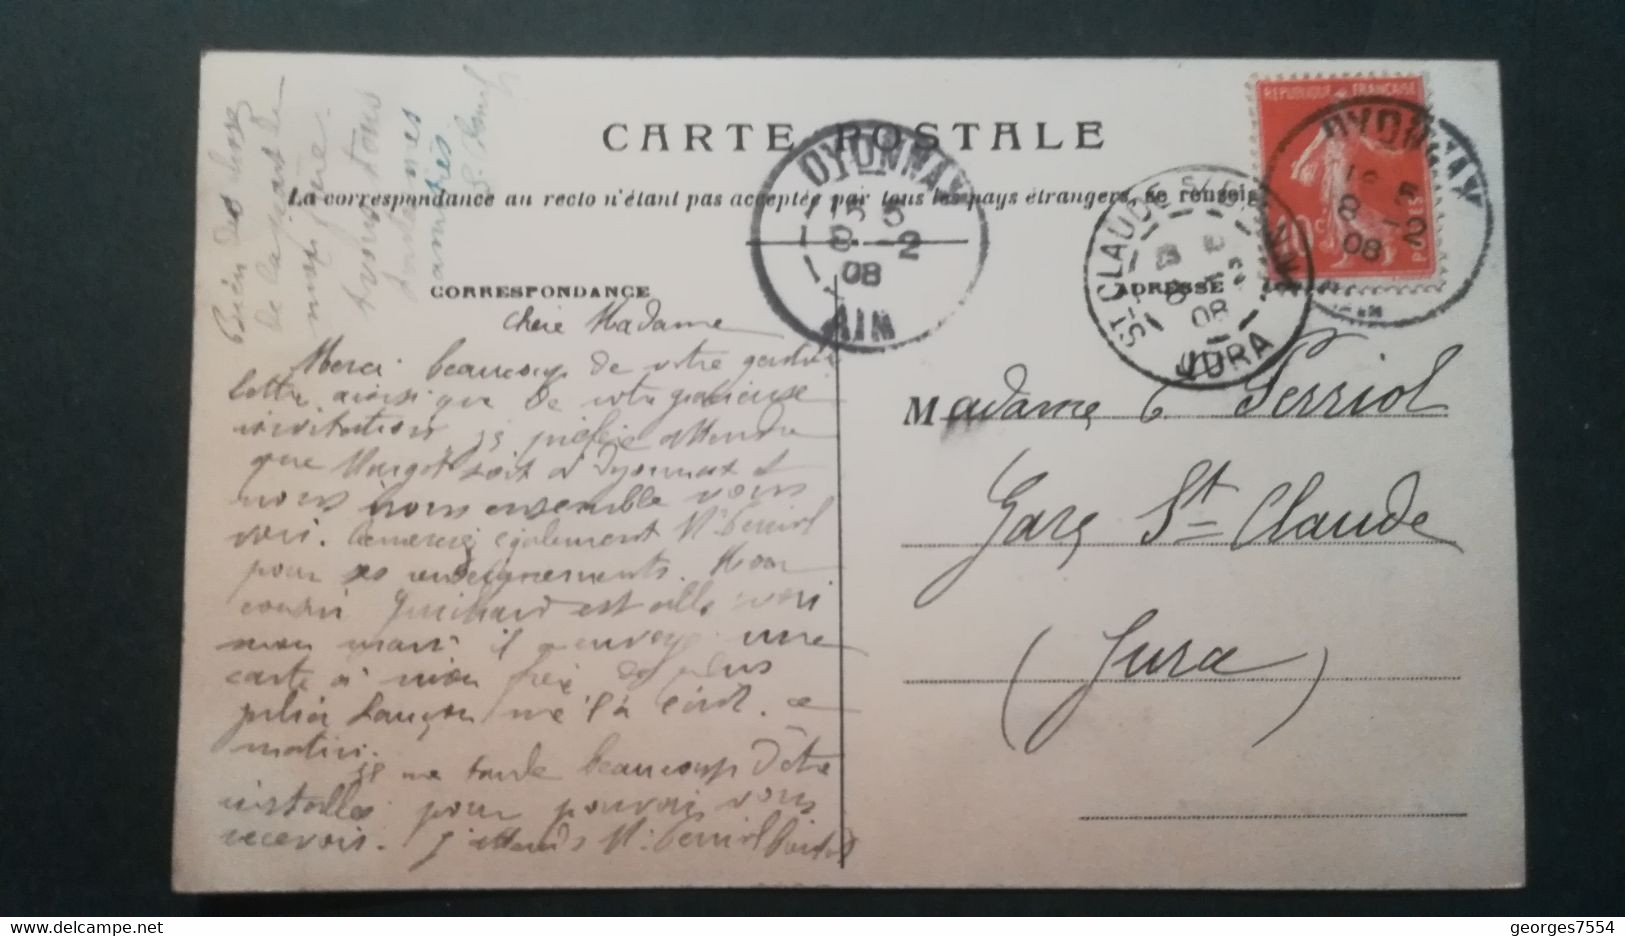 CARTE POSTALE
La correspondance au recto n'étant pas acceptée par tous les pays étrangers, se renseig
CORRESPONDANCE
ADRESSE
REPUBLIQUE FRANÇAISE
10 c
POSTES
OYONNAX
15 5
8 -2
08
AIN
OYONNAX
8 -2
08
ST CLAUDE
08
JURA
Bien des choses
de la part de
mon frère.
à vous tous
amitiés
chère Madame
Merci beaucoup de votre gentille
lettre ainsi que de votre gracieuse
invitation, je préfère attendre
que Margot soit à Oyonnax et
nous irons ensemble vous
voir. Remerciez également Mr Perriol
pour ses renseignements. Mon
cousin Guichard est allé voir
mon mari il a envoyé une
carte à mon frère de plus
Julien Lançon me l'a écrit ce
matin.
je me tarde beaucoup d'être
installés pour pouvoir vous
recevoir. J'attends Mr Perriol
Madame C. Perriol
Gare St Claude
(Jura)
georges7554